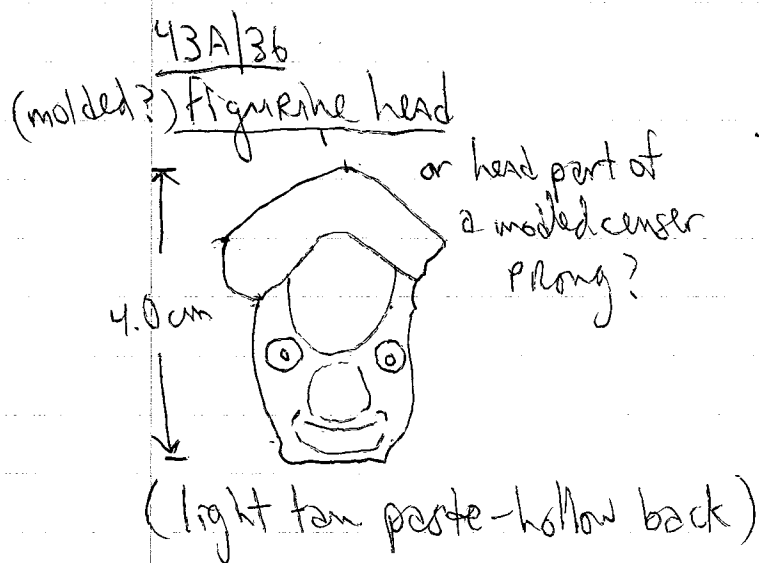 43A/36
(molded?) Figurine head
or head part of
a molded censer
prong?
4.0 cm
(light tan paste-hollow back)